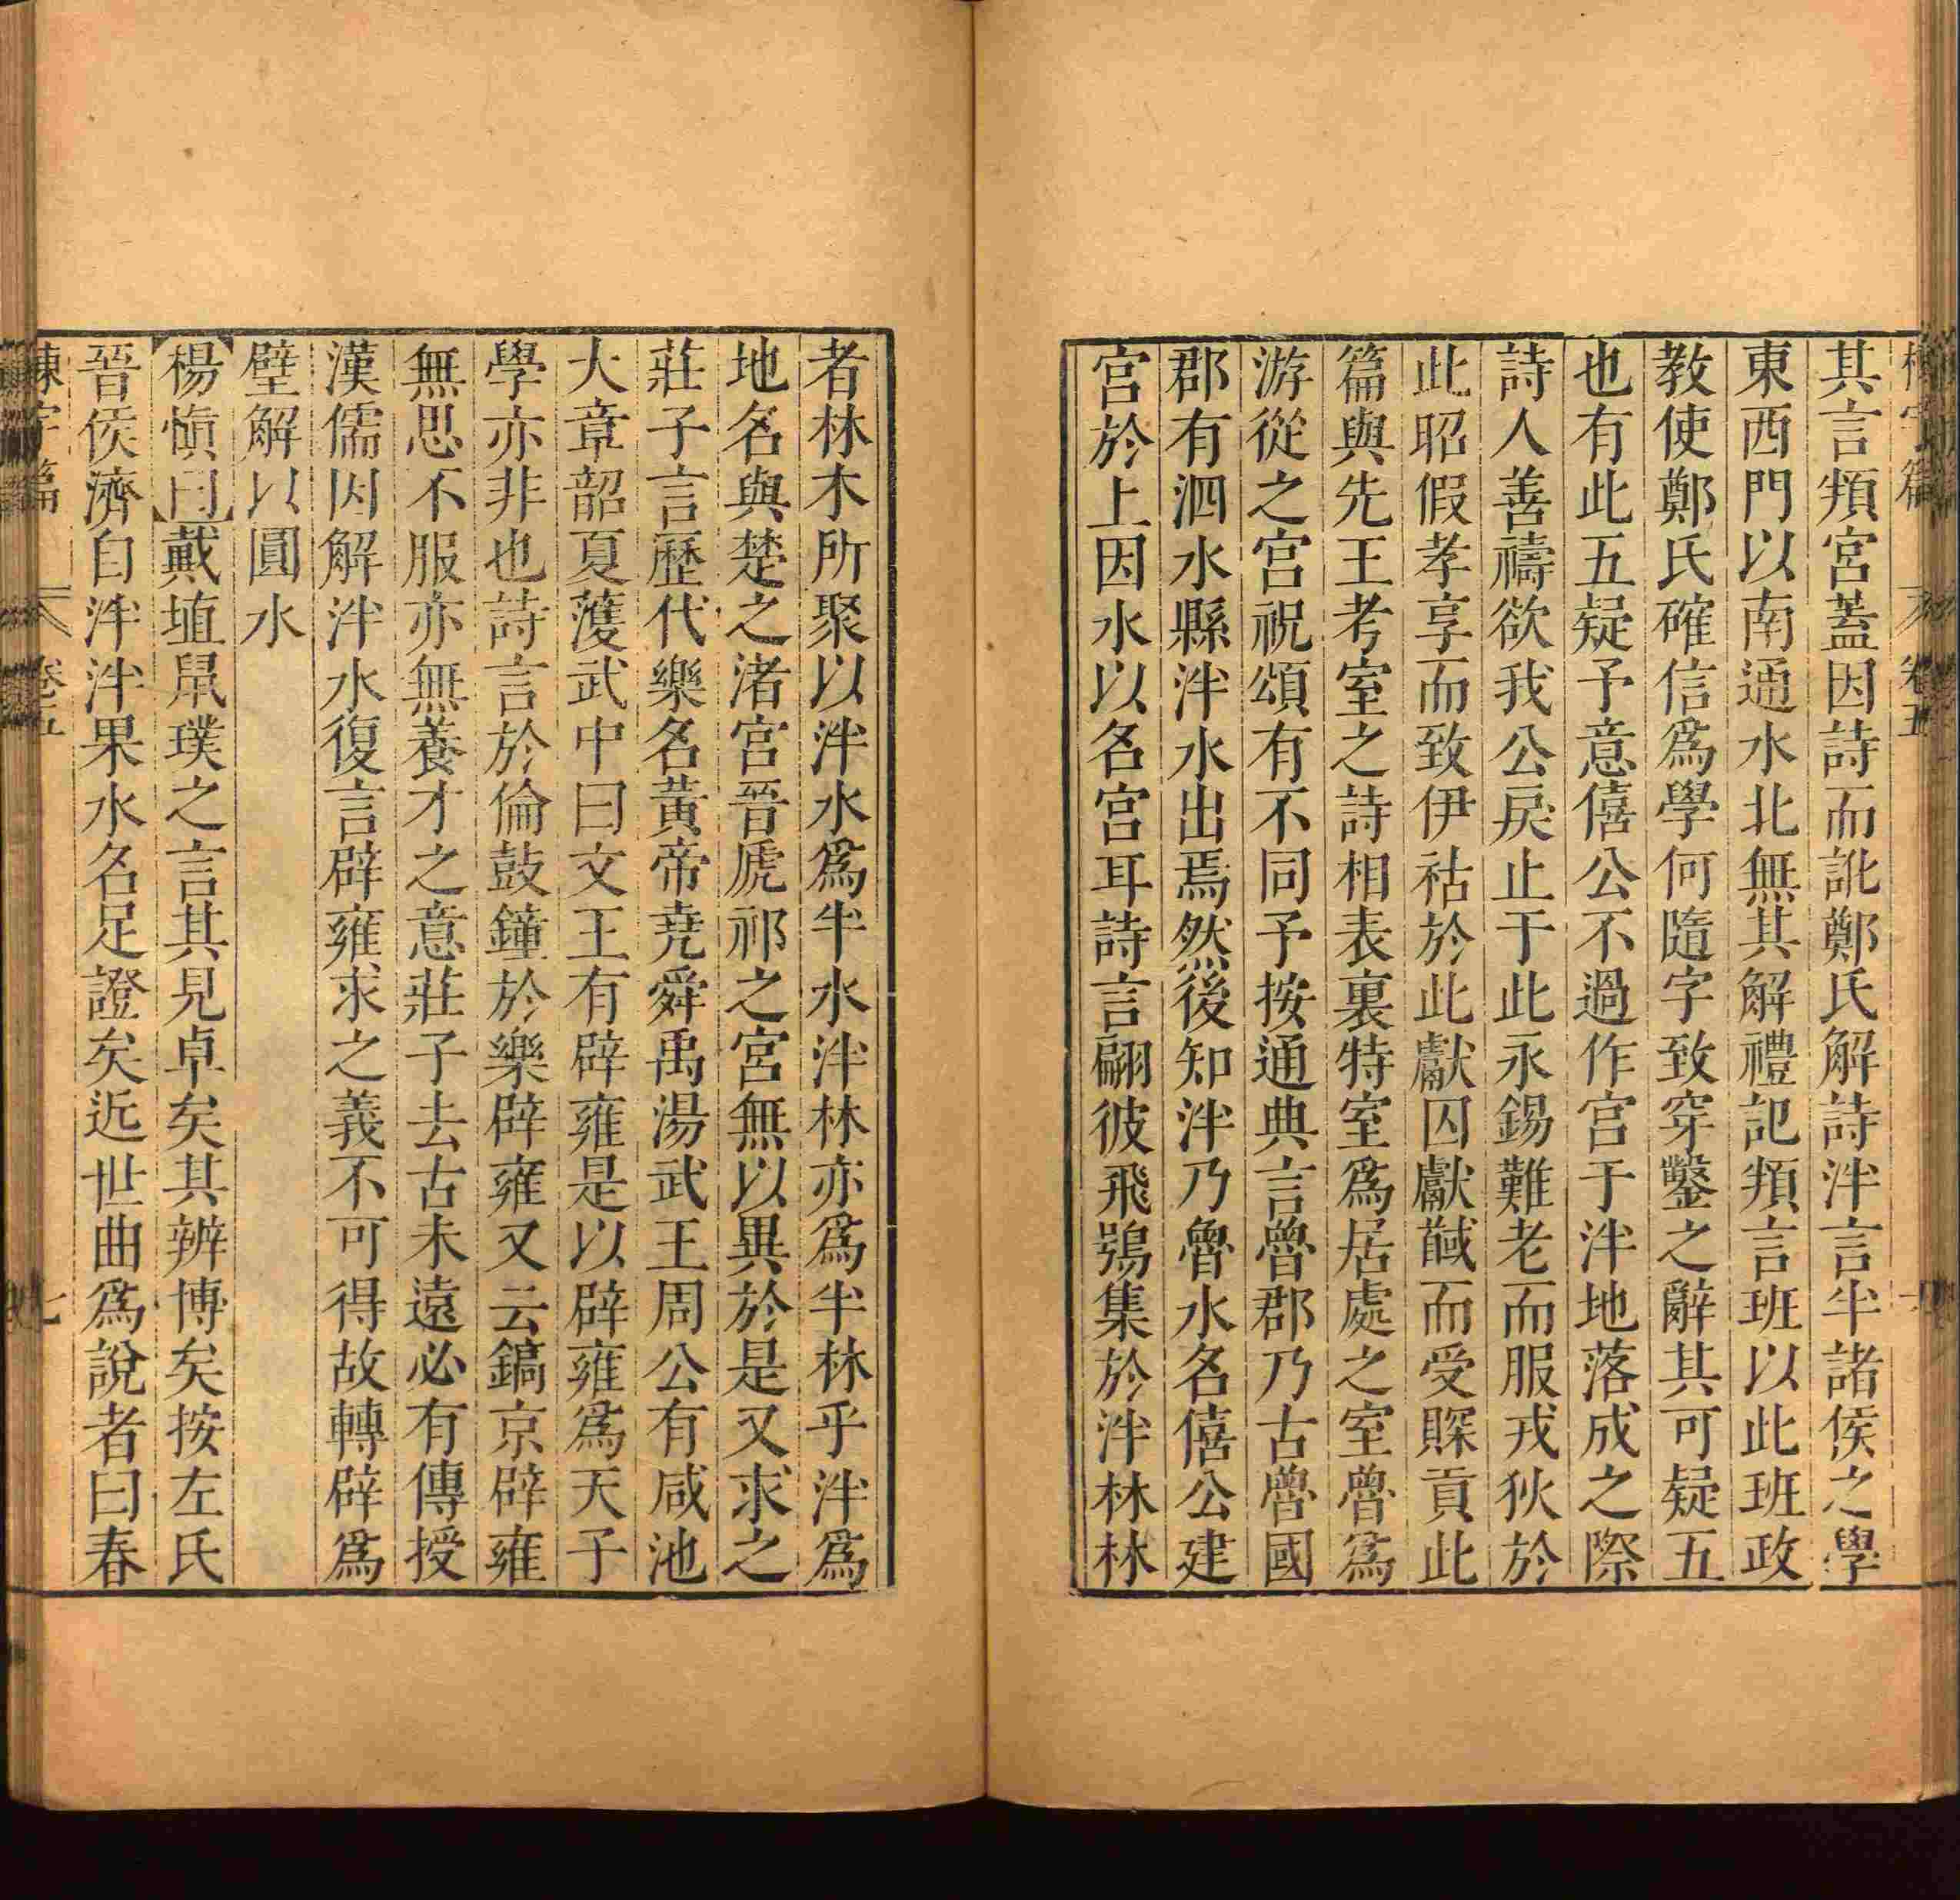 其言頖宮蓋因詩而訛鄭氏解詩泮言半諸侯之學
東西門以南通水北無其解禮記頖言班以此班政
教使鄭氏確信爲學何隨字致穿鑿之辭其可疑五
也有此五疑予意僖公不過作宮于泮地落成之際
詩人善禱欲我公戾止于此永錫難老而服戎狄於
此昭假孝享而致伊祜於此獻囚獻馘而受賝貢此
篇與先王考室之詩相表裏特室爲居處之室魯爲
游從之宮祝頌有不同予按通典言魯郡乃古魯國
郡有泗水縣泮水出焉然後知泮乃魯水名僖公建
宮於上因水以名宮耳詩言翩彼飛鴞集於泮林林
者林木所聚以泮水爲半水泮林亦爲半林乎泮爲
地名與楚之渚宮晉虒祁之宮無以異於是又求之
莊子言歷代樂名黃帝堯舜禹湯武王周公有咸池
大章韶夏濩武中曰文王有辟雍是以辟雍爲天子
學亦非也詩言於倫鼓鐘於樂辟雍又云鎬京辟雍
無思不服亦無養才之意莊子去古未遠必有傳授
漢儒因解泮水復言辟雍求之義不可得故轉辟爲
璧解以圓水
楊愼曰戴埴鼠璞之言其見卓矣其辨博矣按左氏
晉侯濟自泮泮果水名足證矣近世曲爲說者曰春